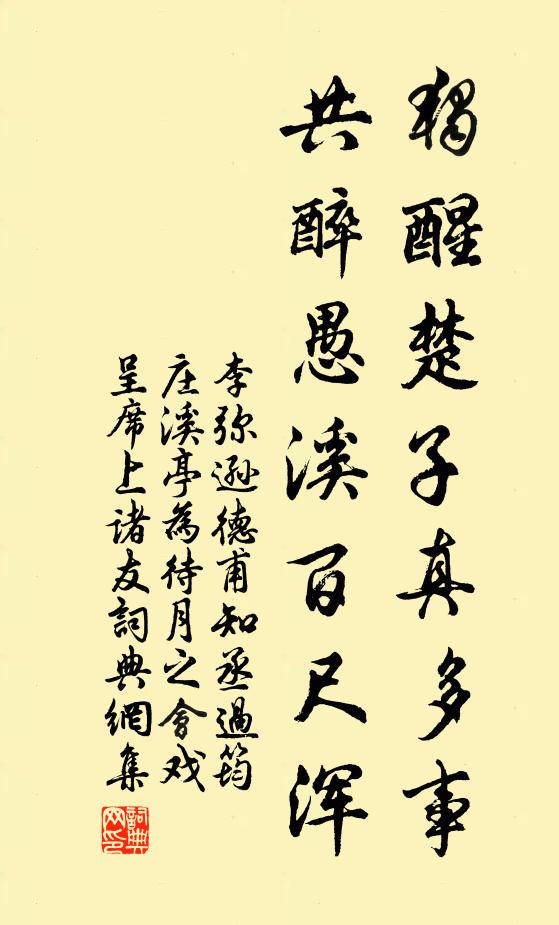 獨醒楚子真多事
共醉愚溪百尺渾
李弥遜德甫知丞過筠
庄溪亭為待月之會戏
呈席上诸友詞典網集
詞典网印